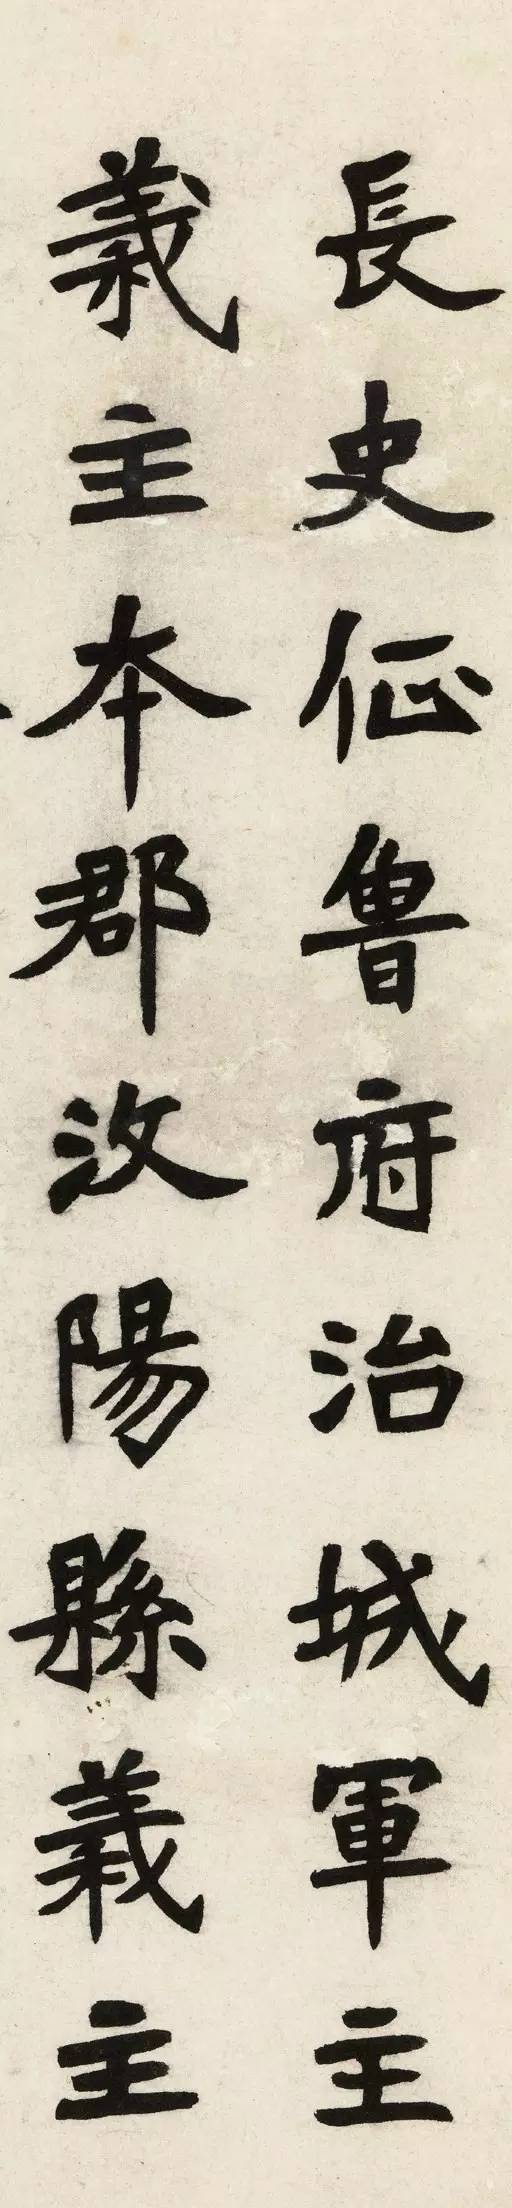 長史征魯府治城軍主
義主本郡汶陽縣義主